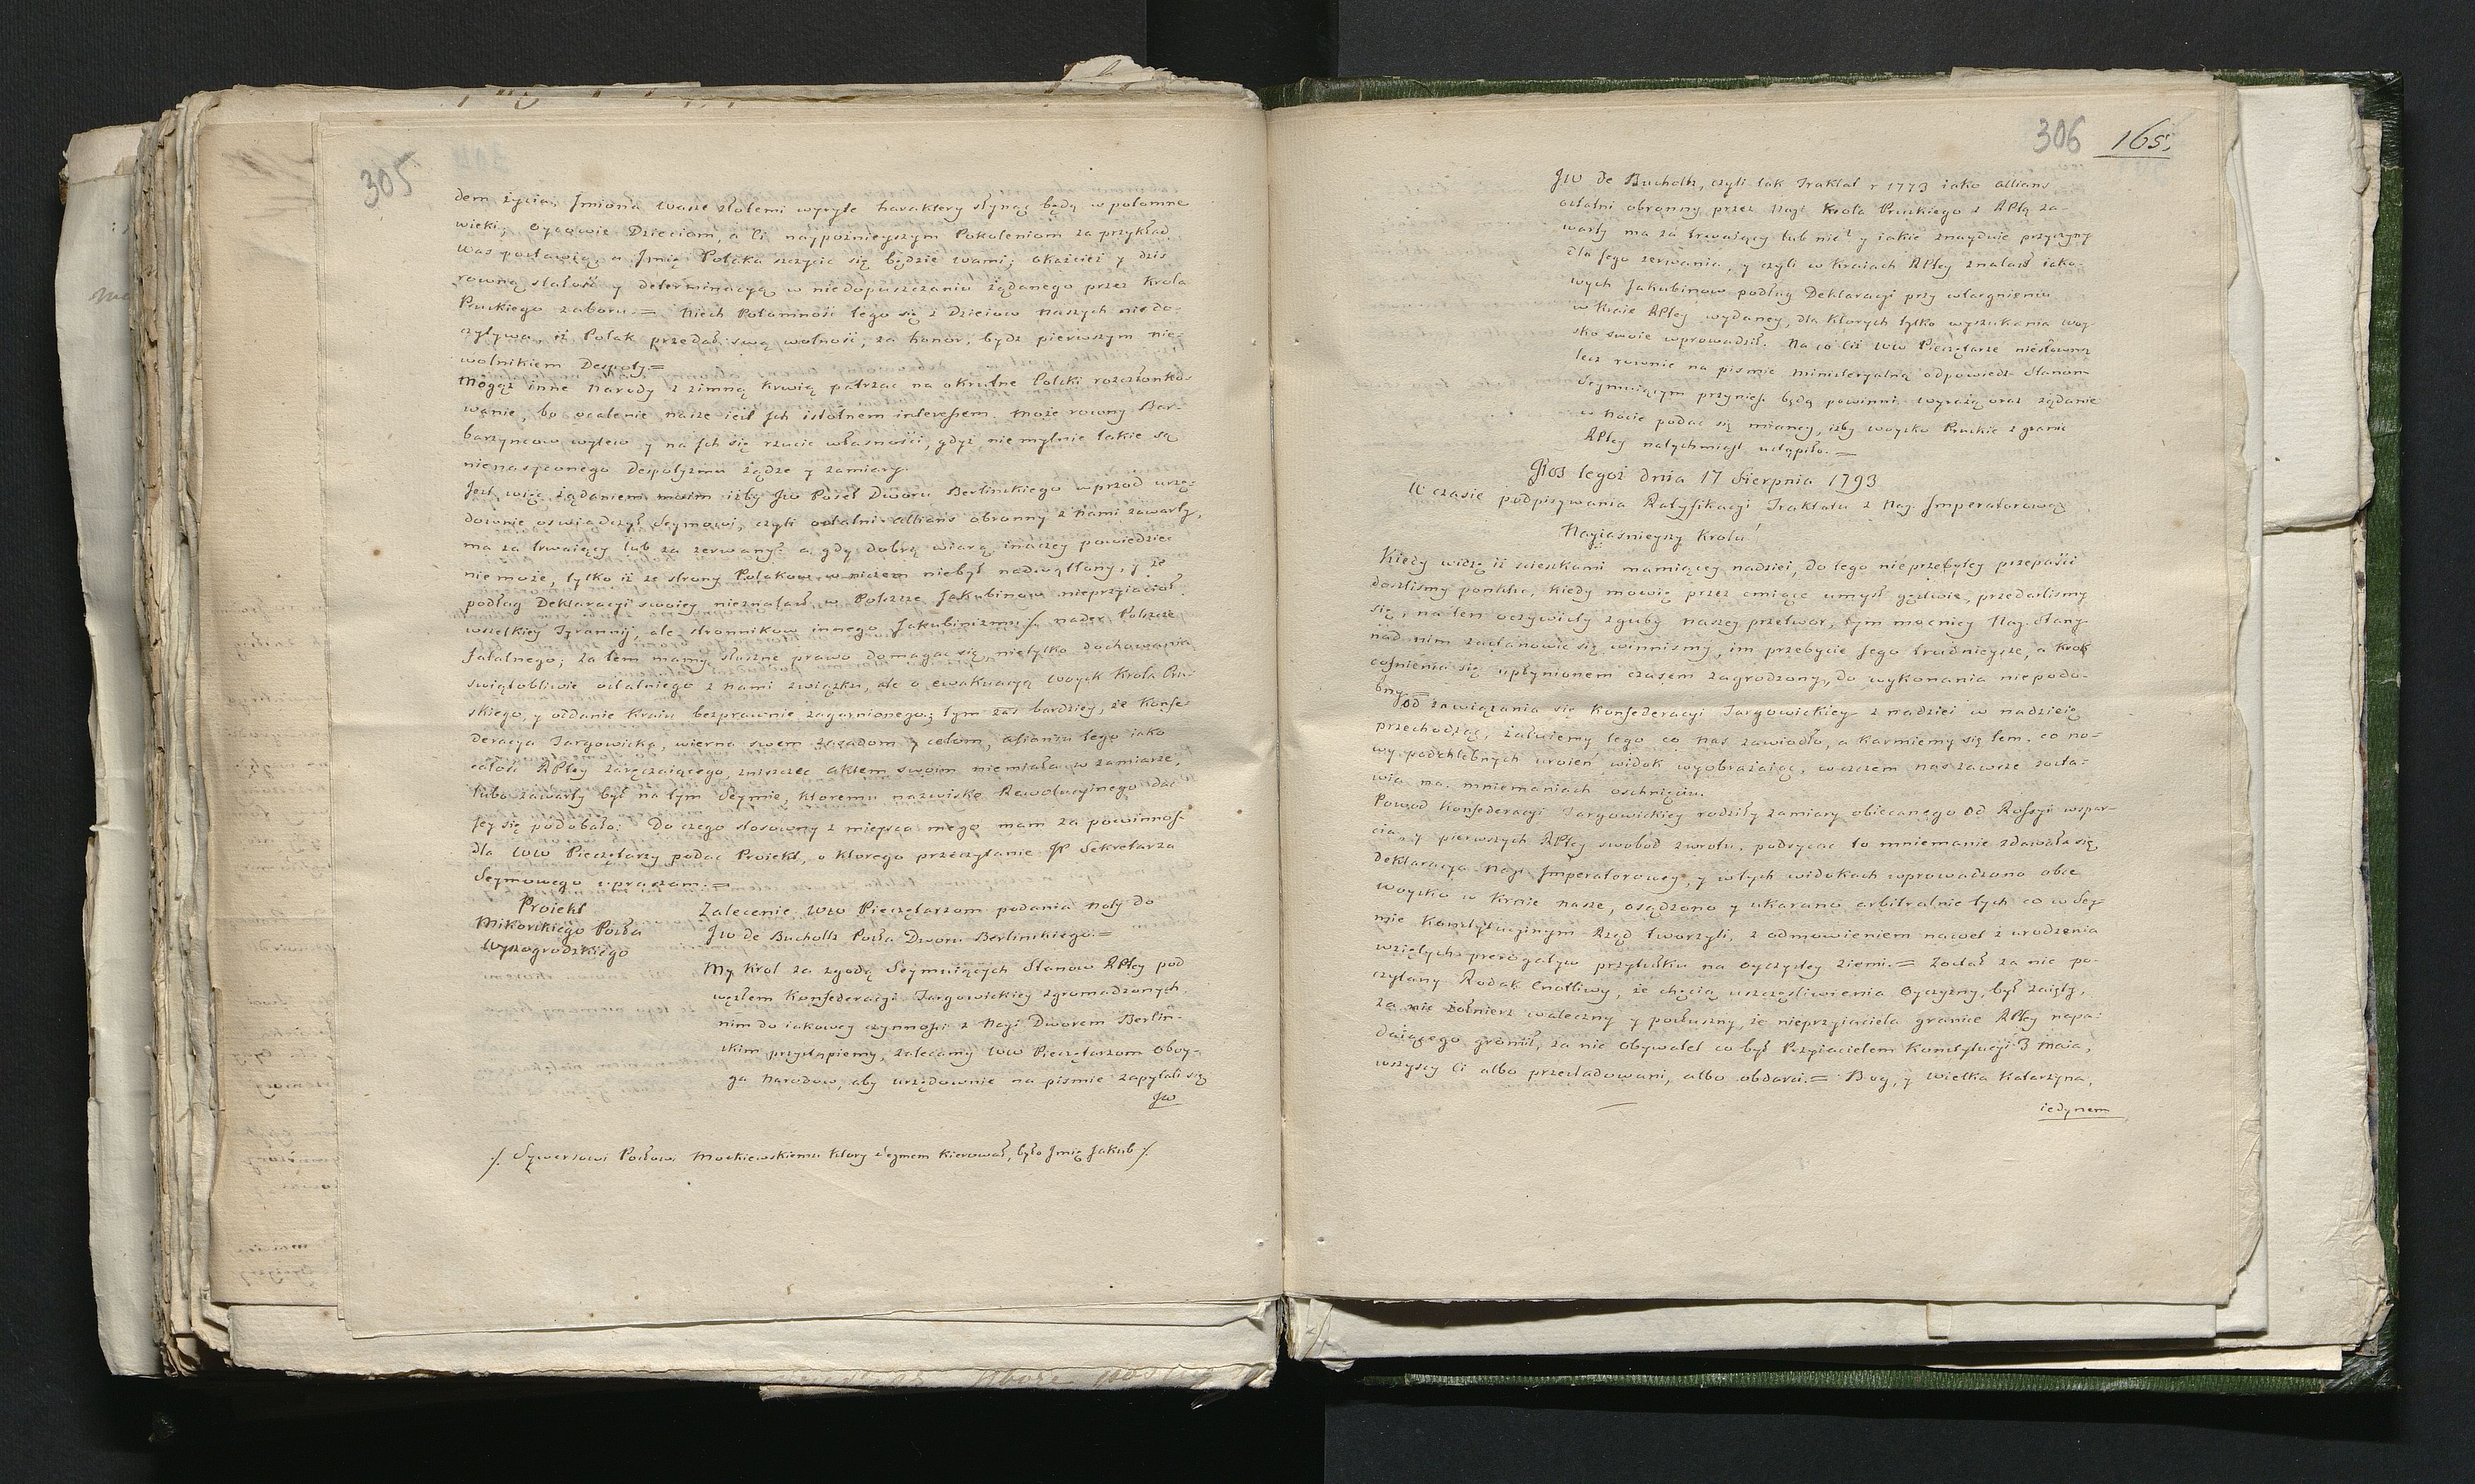 305
dem życia; Imiona wasze złotemi wyryteharaktery słynąć będą w potomne
wieki; Oycowie Dzieciom, a Ci naypoźnieyszym Pokoleniom za przykład
Was postawią, a Imię Polaka szczycić się będzie wami; okażcież y dziś
rowną stałość y determinacyą w niedopuszczaniu żądanego przez Krola
Pruskiego zaboru.= Niech Potomność tego się z Dzieiow naszych nie do-
czytywa, iż Polak przedał swą wolność, za honor, bydź pierwszym nie-
wolnikiem Despoty.=
Mogąż inne Narody z zimną krwią patrzać na okrutne Polski rozczłonko-
wanie, bo ocalenie nasze iest Ich istotnem interessem. Może rowny Bar-
barzyncow wylew y na Ich się rzucić własności, gdyż niemylnie takie są
nienasyconego Despotyzmu żądze y zamiary.
Jest więc żądaniem moim iżby JW Poseł Dworu Berlinskiego wprzod urzę-
downie oswiadczył Seymowi, czyli ostatni allians obronny z Nami zawarty,
ma za trwaiący lub za zerwany? a gdy dobrą wiarą inaczey powiedzieć
nie może, tylko iż ze strony Polakow w niczem niebył nadwątlony, y że
podług Deklaracyi swoiey nieznalazł w Polszcze Jakubinow nieprzyiacioł
wszelkiey Tyrannij, ale stronnikow innego Jakubinizmu /. nader Polszcze
fatalnego; za tem mamy słuszne prawo domagać się, nietylko dochowania
swiątobliwie ostatniego z nami związku, ale o ewakuacyą woysk Krola Pru-
skiego, y oddanie Kraiu bezprawnie zagarnionego; tym zaś bardziey, że Konfe-
deracya Targowicka, wierna swem zasadom y celom, aliansu tego iako
całość RPltey zaręczaiącego, zniszczeć aktem swoim niemiała w zamiarze,
lubo zawarty był na tym Seymie, ktoremu nazwisko Rewolucyinego dać
Jey się podobało: Do czego stosowny z mieysca mego mam za powinność
dla WW Pieczętarzy podać Proiekt, o ktorego przeczytanie JP Sekretarza
Seymowego upraszam.=
Proiekt
Mikorskiego Posła
Wyszogrodzkiego
Zalecenie WW Pieczętarzom podania Noty do
JW de Bucholtz Posła Dworu Berlinskiego.=
My Krol za zgodą Seymuiących Stanow RPltey pod
węzłem Konfederacyi Targowickiey zgromadzonych
nim do iakowey czynności z Nayi Dworem Berlin-
skim przystąpiemy, zalecamy WW Pieczętarzom Oboy-
ga Narodow, aby urzędownie na pismie zapytali się
JW
/. Sywersowi Posłowi Moskiewskiemu ktory Seymem kierował, było Imię Jakub /.
306 165.
JW de Bucholtz, czyli tak Traktat r 1773 iako allians
ostatni obronny przez Nayi Krola Pruskiego z RPltą za-
warty ma za trwaiący lub nie? y iakie znayduie przyczyny
dla Jego zerwania, y czyli w Kraiach RPltey znalazł iako-
wych Jakubinow podług Deklaracyi przy wtargnieniu
w Kraie RPltey wydaney, dla ktorych tylko wyszukania woy-
sko swoie wprowadził. Na co Ciż WW Pieczętarze niesłowną
lecz rownie na pismie ministeryalną odpowiedź Stanom
Seymuiącym przynieść będą powinni. wyrażą oraz żądanie
w Nocie podać się mianey, iżby woysko Pruskie z granic
RPltey natychmiast ustąpiło.=
Głos tegoż dnia 17 Sierpnia 1793
W czasie podpisywania Ratyfikacyi Traktatu z Nay. Imperatorową
Nayiasnieyszy Krolu!
Kiedy widzę iż scieszkami mamiącey nadziei, do tego nieprzebytey przepaści
doszlismy punktu, kiedy mowię przez cmiące umysł gęstwie, przedarlismy
się, na ten oczywisty zguby naszey przetwor, tym mocniey Nay. Stany
nad nim zastanowić się winnismy, im przebycie Jego trudnieysze, a krok
cofnienia się upłynionem czasem zagrodzony, do wykonania niepodo-
bny.=
Od zawiązania się Konfederacyi Targowickiey z nadziei w nadzieię
przechodząc, żałuiemy tego co nas zawiodło, a karmiemy się tem, co no-
wy podchlebnych uroień widok wyobrażaiąc, wczczem nas zawsze zosta-
wia na mniemaniach oschnięciu.
Powod Konfederacyi Targowickiey rodziły zamiary obiecanego od Rossyi wspar-
cia, y pierwszych RPltey swobod zwrotu, podsycać to mniemanie zdawała się
Deklaracya Nayi Imperatorowey, y wtych widokach wprowadzono obce
woysko w Kraie nasze, osądzono y ukarano arbitralnie tych co w Sey-
mie Konstytucyinym Rząd tworzyli, z odmowieniem nawet z urodzenia
wziętych prerogatyw przytułku na oyczystey ziemi.= Został za nic po-
czytany Rodak Cnotliwy, że chęcią uszczęśliwienia Oyczyzny, był zaięty,
za nic żołnierz waleczny y posłuszny, że nieprzyiaciela granice RPltey napa-
daiącego gromił, za nic Obywatel co był Przyiacielem Konstytucyi 3 Maia,
wszyscy Ci albo przesladowani, albo obdarci.= Bog, y Wielka Katarzyna,
iedynem